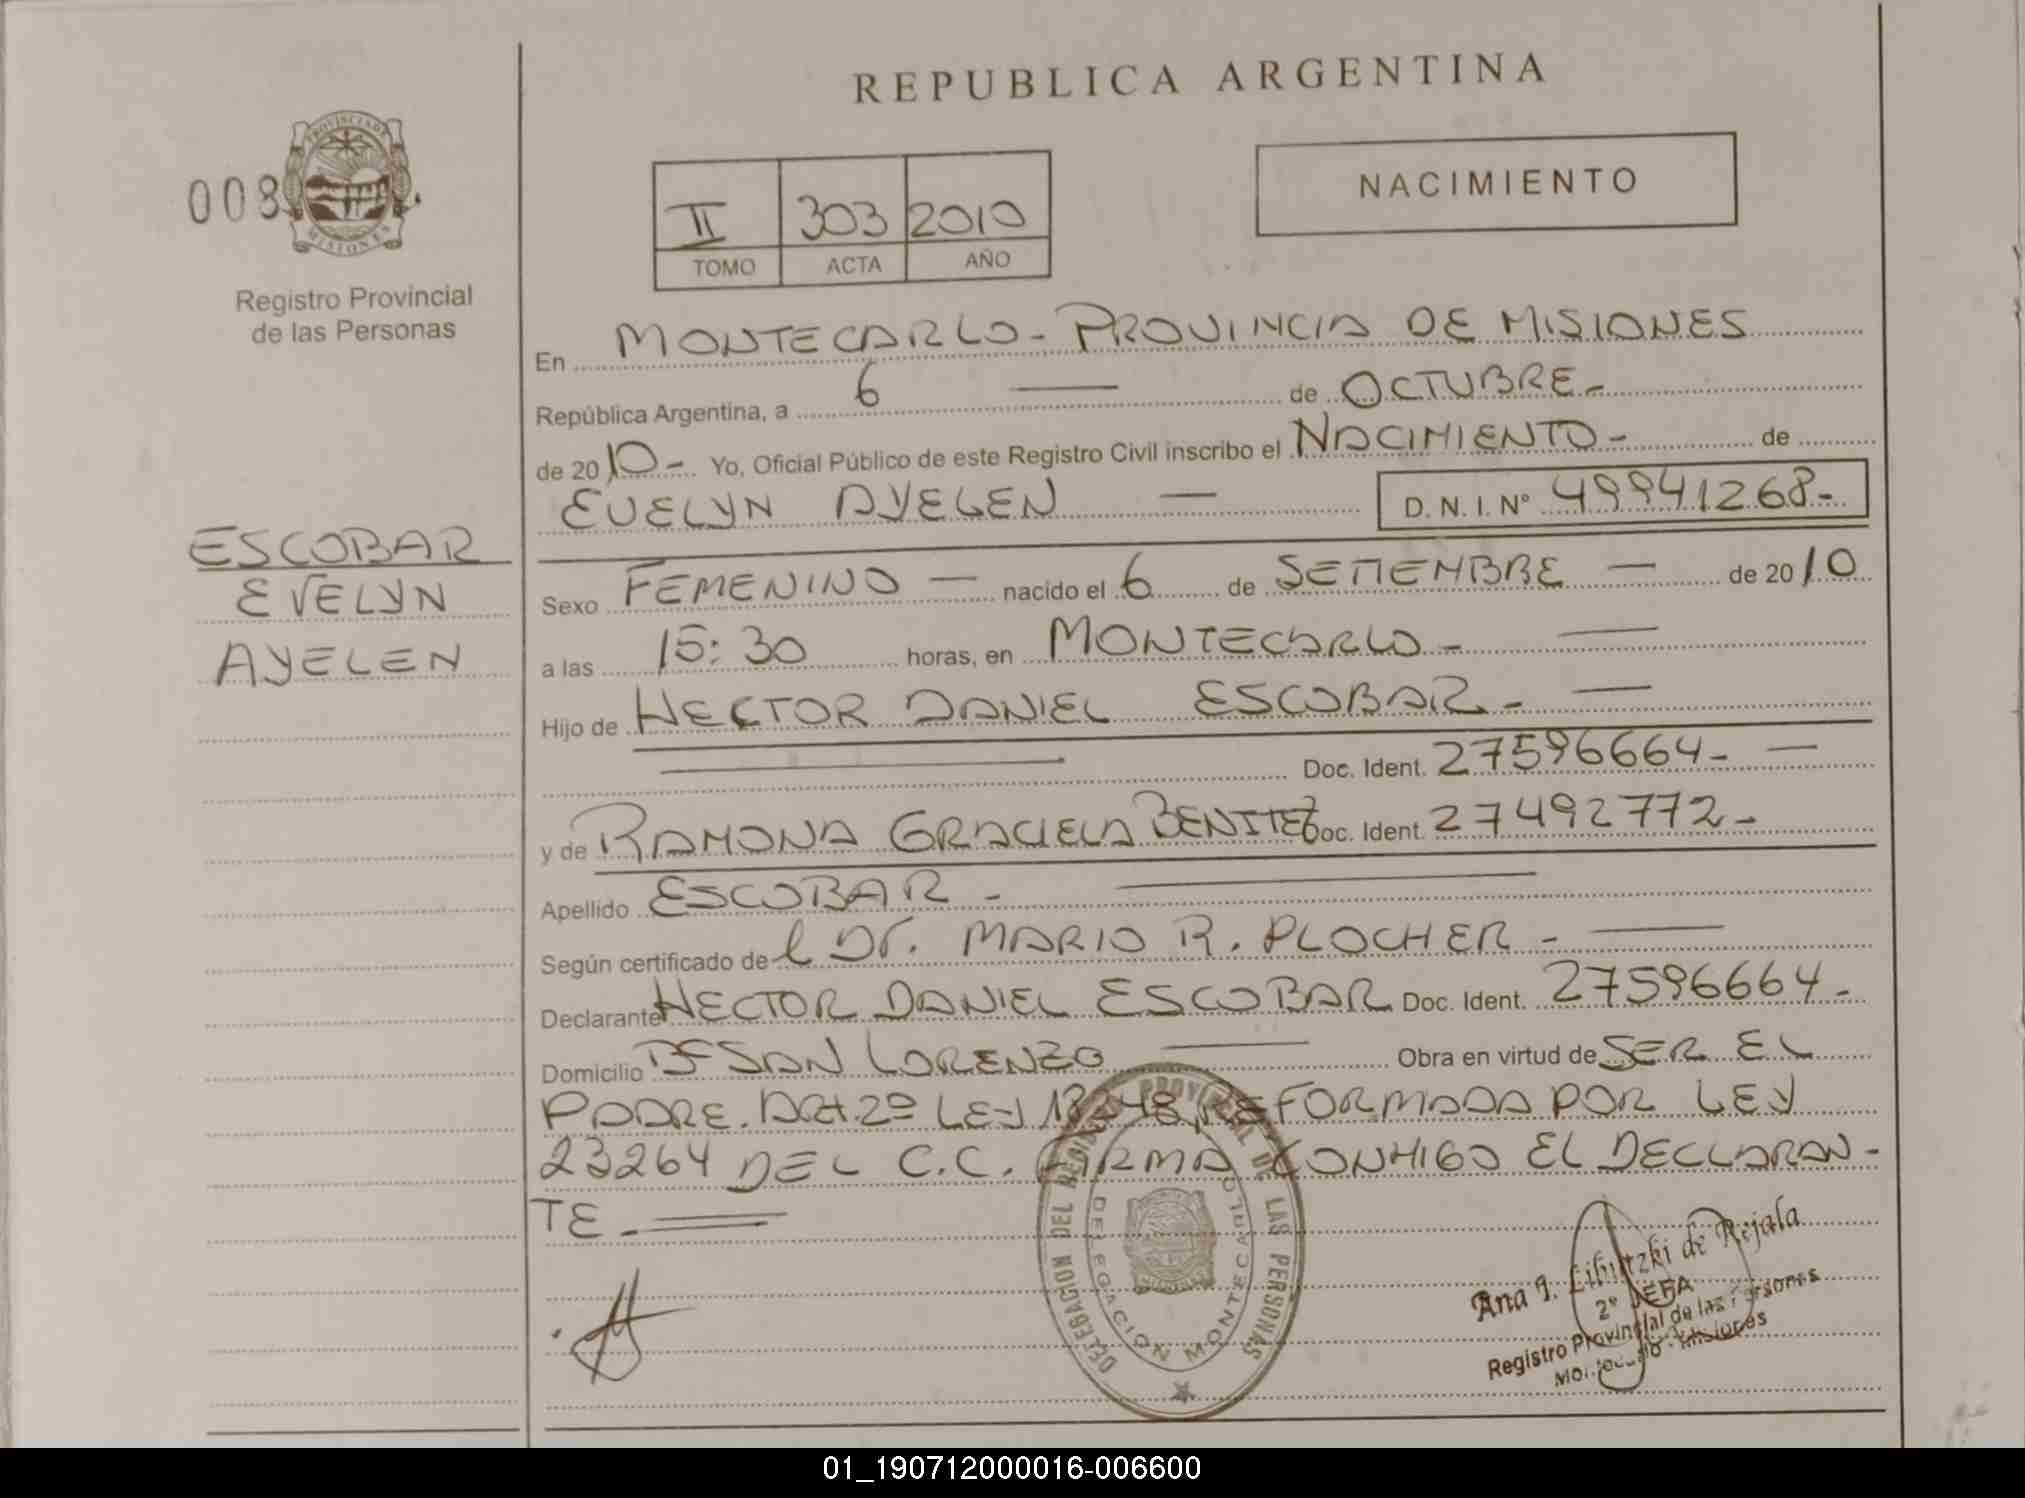 REPUBLICA ARGENTINA
008
PROVINCIA DE
MISIONES
Registro Provincial
de las Personas
II 303 2010
TOMO ACTA AÑO
NACIMIENTO
En MONTECARLO - PROVINCIA DE MISIONES
República Argentina, a 6 — de OCTUBRE -
de 2010 - Yo, Oficial Público de este Registro Civil inscribo el NACIMIENTO - de
EVELYN AYELEN — D. N. I. Nº 49941268 -
ESCOBAR
EVELYN
AYELEN
Sexo FEMENINO — nacido el 6 de SETIEMBRE — de 2010
a las 15:30 horas, en MONTECARLO - —
Hijo de HECTOR DANIEL ESCOBAR - —
Doc. Ident. 27596664 - —
y de RAMONA GRACIELA BENITEZ Doc. Ident. 27492772 -
Apellido ESCOBAR - —
Según certificado de l Dr. MARIO R. PLOCHER - —
Declarante HECTOR DANIEL ESCOBAR Doc. Ident. 27596664 -
Domicilio Bº SAN LORENZO — Obra en virtud de SER EL
PADRE. Art. 2º LEY 18248 REFORMADA POR LEY
23264 DEL C.C. FIRMA CONMIGO EL DECLARAN -
TE -
DELEGACION DEL REGISTRO PROVINCIAL DE LAS PERSONAS
DELEGACION MONTECARLO
Ana I. de Rejala
2º JEFA
Registro Provincial de las Personas
Montecarlo - Misiones
01_190712000016-006600